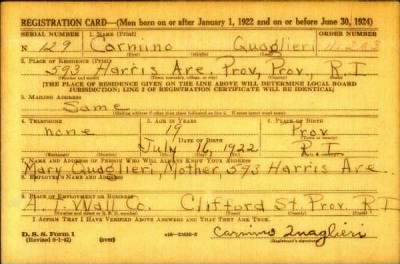 REGISTRATION CARD—(Men born on or after January 1, 1922 and on or before June 30, 1924)
SERIAL NUMBER 1. NAME (Print) ORDER NUMBER
N 129 Carmino Quaglieri
(First) (Middle) (Last)
2. PLACE OF RESIDENCE (Print)
593 Harris Are. Prov, Prov. R I
(Number and street) (Town, township, village, or city) (County) (State)
[THE PLACE OF RESIDENCE GIVEN ON THE LINE ABOVE WILL DETERMINE LOCAL BOARD
JURISDICTION; LINE 2 OF REGISTRATION CERTIFICATE WILL BE IDENTICAL]
3. MAILING ADDRESS
Same
[Mailing address if other than place indicated on line 2. If same insert word same]
4. TELEPHONE 5. AGE IN YEARS 6. PLACE OF BIRTH
none 19 Prov
DATE OF BIRTH
July 16, 1922 R I
(Exchange) (Number) (Mo.) (Day) (Yr.) (State or country)
7. NAME AND ADDRESS OF PERSON WHO WILL ALWAYS KNOW YOUR ADDRESS
Mary Quaglieri, Mother, 593 Harris Are.
8. EMPLOYER'S NAME AND ADDRESS
A. T. Wall Co. Clifford St. Prov. R I
9. PLACE OF EMPLOYMENT OR BUSINESS
(Number and street or R. F. D. number) (Town) (County) (State)
I AFFIRM THAT I HAVE VERIFIED ABOVE ANSWERS AND THAT THEY ARE TRUE.
D. S. S. Form 1
(Revised 6-1-42) (over) Carmino Quaglieri
(Registrant's signature)